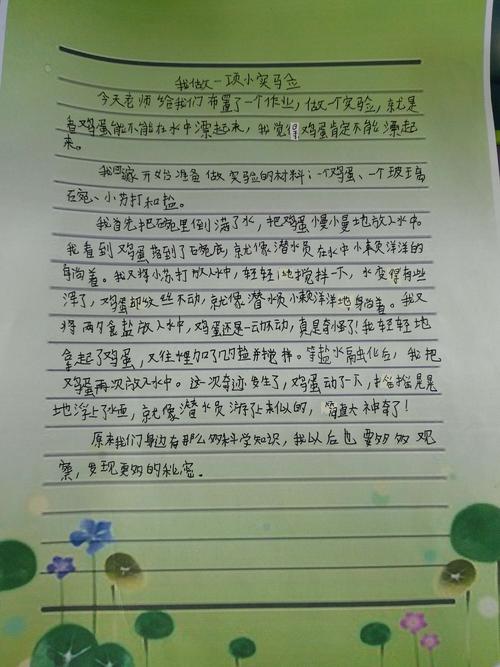 我做一项小实验
今天老师给我们布置了一个作业，做一个实验，就是
看鸡蛋能不能在水中漂起来，我觉得鸡蛋肯定不能漂起
来。
我回家开始准备做实验的材料：一个鸡蛋、一个玻璃
碗、小苏打和盐。
我首先把碗里倒满了水，把鸡蛋慢慢地放入水中。
我看到鸡蛋落到了碗底，就像潜水员在水中懒洋洋的
躺着。我又将小苏打放入水中，轻轻地搅拌一下，水变得有些
浑了，鸡蛋却纹丝不动，就像潜水员懒洋洋地躺着。我又
将两勺食盐放入水中，鸡蛋还是一动不动，真是奇怪了！我轻轻地
拿起了鸡蛋，又往里加了几勺盐并搅拌。等盐水融化后，我把
鸡蛋再次放入水中。这一次奇迹发生了，鸡蛋动了一下，摇摇晃晃
地浮上了水面，就像潜水员游上来似的，简直太神奇了！
原来我们身边有那么多科学知识，我以后也要多多观
察，发现更多的秘密。